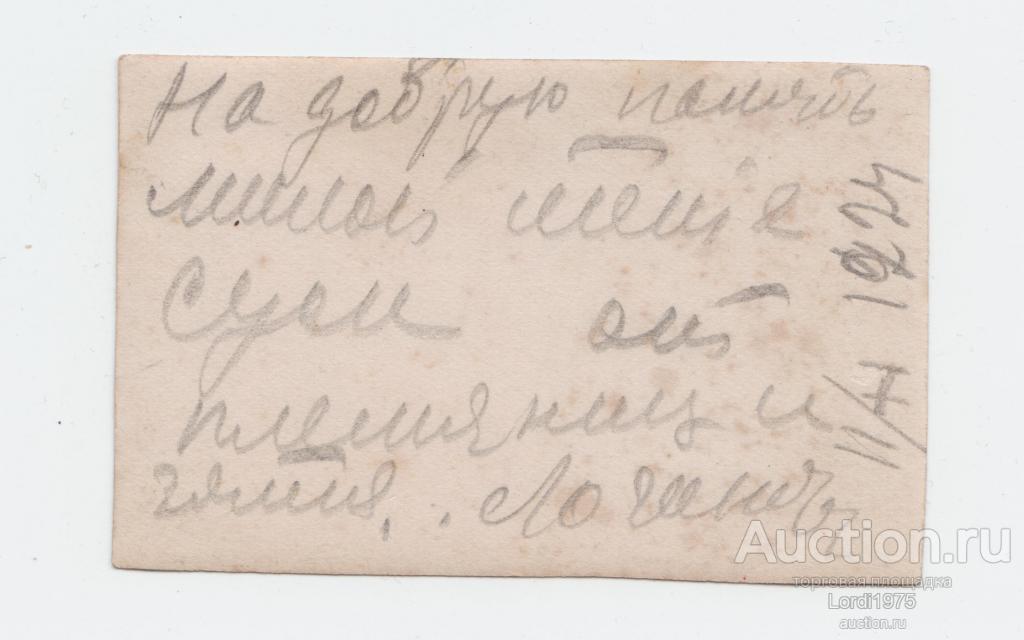 На добрую память
милой тети
Суси отъ
племянницы
11/II 1924
Auction.ru
торговая площадка
Lordi1975
auction.ru